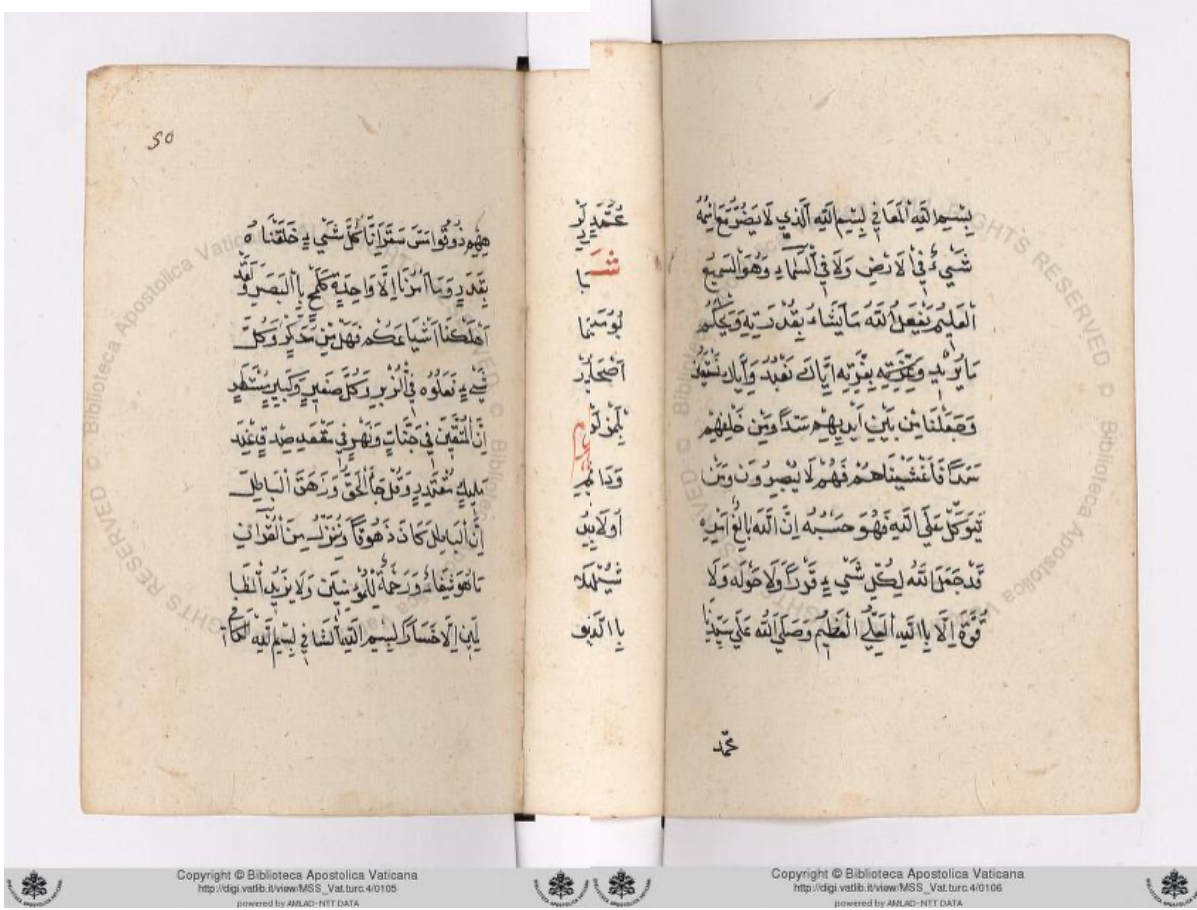 50
هِهِمْ ذُوقُوا مَسَّ سَقَرَ اِنَّا كُلَّ شَيْءٍ خَلَقْنَاهُ
بِقَدَرٍ وَمَا اَمْرُنَا اِلَّا وَاحِدَةٌ كَلَمْحٍ بِا الْبَصَرِ وَلَقَدْ
اَهْلَكْنَا اَشْيَاعَكُمْ فَهَلْ مِنْ مُدَّكِرٍ وَكُلُّ
شَيْءٍ فَعَلُوهُ فِي الْزُبُرِ وَكُلُّ صَغِيرٍ وَكَبِيرٍ مُسْتَطَرٌ
اِنَّ الْمُتَّقِينَ فِي جَنَّاتٍ وَنَهَرٍ فِي مَقْعَدِ صِدْقٍ عِنْدَ
مَلِيكٍ مُقْتَدِرٍ وَقُلْ جَاْ الْحَقُّ وَزَهَقَ الْبَاطِلُ
اِنَّ الْبَاطِلَ كَانَ ذَهُوقًا وَنُنَزِّلُ مِنَ الْقُرْاٰنِ
مَا هُوَ شِفَاءٌ وَرَحْمَةٌ لِلْمُؤْمِنِينَ وَلَا يَزِيدُ الْظَا
لِمِينَ اِلَّا خَسَارًا لِبِسْمِ اللّٰهِ الْشَافِي بِسْمِ اللّٰهِ الْكَافِي
بِسْمِ اللّٰهِ الْمَعَافِي بِسْمِ اللّٰهِ الَّذِي لَا يَضُرُّ مَعَ اسْمِهِ
شَيْءٌ فِي الْاَرْضِ وَلَا فِي الْسَّمَاءِ وَهُوَ السَّمِيعُ
الْعَلِيمُ يَفْعَلُ اللّٰهُ مَا يَشَاءُ بِقُدْرَتِهِ وَيَحْكُمُ
مَا يُرِيدُ وَعِزَّتِهِ بِعِزَّتِهِ اِيَّاكَ نَعْبُدُ وَاِيَّاكَ نَسْتَعِينُ
وَجَعَلْنَا مِنْ بَيْنِ اَيْدِيهِمْ سَدًّا وَمِنْ خَلْفِهِمْ
سَدًّا فَاَغْشَيْنَاهُمْ فَهُمْ لَا يُبْصِرُونَ وَمَنْ
يَتَوَكَّلْ عَلَى اللّٰهِ فَهُوَ حَسْبُهُ اِنَّ اللّٰهَ بَالِغُ اَمْرِهِ
قَدْ جَعَلَ اللّٰهُ لِكُلِّ شَيْءٍ قَدْرًا وَلَا حَوْلَهُ وَلَا
قُوَّةَ اِلَّا بِا اللّٰهِ الْعَلِيِّ الْعَظِيمِ وَصَلَّى اللّٰهُ عَلَى سَيِّدِنَا
محمّد
Copyright © Biblioteca Apostolica Vaticana
http://digi.vatlib.it/view/MSS_Vat.turc.4/0105
powered by AMLAD-NTT DATA
Copyright © Biblioteca Apostolica Vaticana
http://digi.vatlib.it/view/MSS_Vat.turc.4/0106
powered by AMLAD-NTT DATA